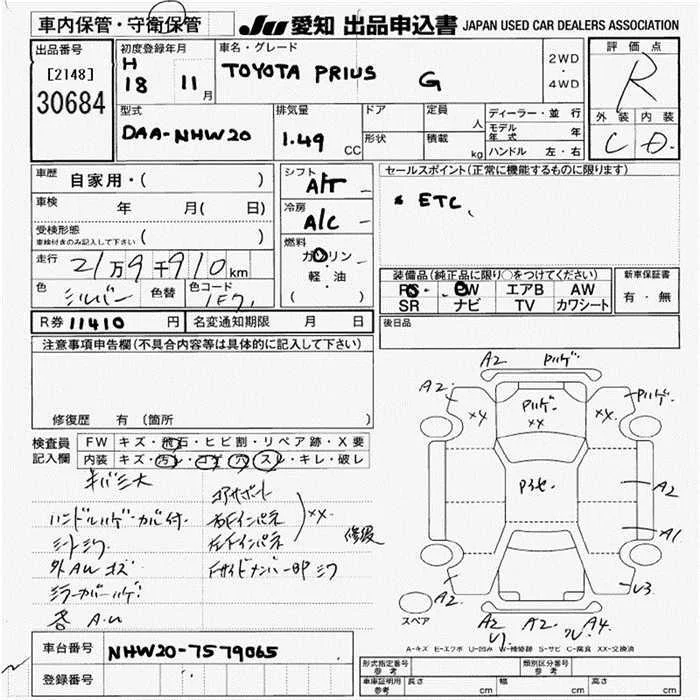 車内保管・守衛保管
JU 愛知 出品申込書 JAPAN USED CAR DEALERS ASSOCIATION
出品番号
[2148]
30684
初度登録年月
H 18 11月
車名・グレード
TOYOTA PRIUS G
2WD
・
4WD
評価点
R
外装 内装
C D
型式
DAA-NHW20
排気量
1.49 CC
ドア
形状
定員 人
積載 kg
ディーラー・並行
モデル年式 年
ハンドル 左・右
車歴 自家用・( )
車検 年 月( 日)
受検形態
車検付きのみ記入して下さい ( )
走行 21万9千910km
色 シルバー 色替 色コード 1F7
シフト
A/T
冷房
A/C
燃料
ガソリン
軽・油
( )
セールスポイント(正常に機能するものに限ります)
* ETC
装備品(純正品に限り○をつけてください)
PS PW エアB AW
SR ナビ TV カワシート
新車保証書
有・無
R券 11410 円 名変通知期限 月 日
後日品
注意事項申告欄(不具合内容等は具体的に記入して下さい)
修復歴 有 (箇所 )
検査員記入欄
FW キズ・飛石・ヒビ割・リペア跡・X要
内装 キズ・汚レ・コゲ・穴・スレ・キレ・破レ
キバミ大
ハンドルハゲ・カバー付
シートシワ
外AWキズ
ミラーカバーハゲ
各 A.U
コアサポート
右Fインパネ
左Fインパネ
XX
修復
A2 Pハゲ
A2
Pハゲ
X4
Pハゲ
XX
X4
A2
A1
A2
U3
A2 A2 A4
スペア
A-キズ E-エクボ U-凹み W-補修跡 S-サビ C-腐食 XX-交換済
車台番号 NHW20-7579065
登録番号
形式指定番号
参考
類別区分番号
参考
車庫証明用
参考
長さ cm 幅 cm 高さ cm